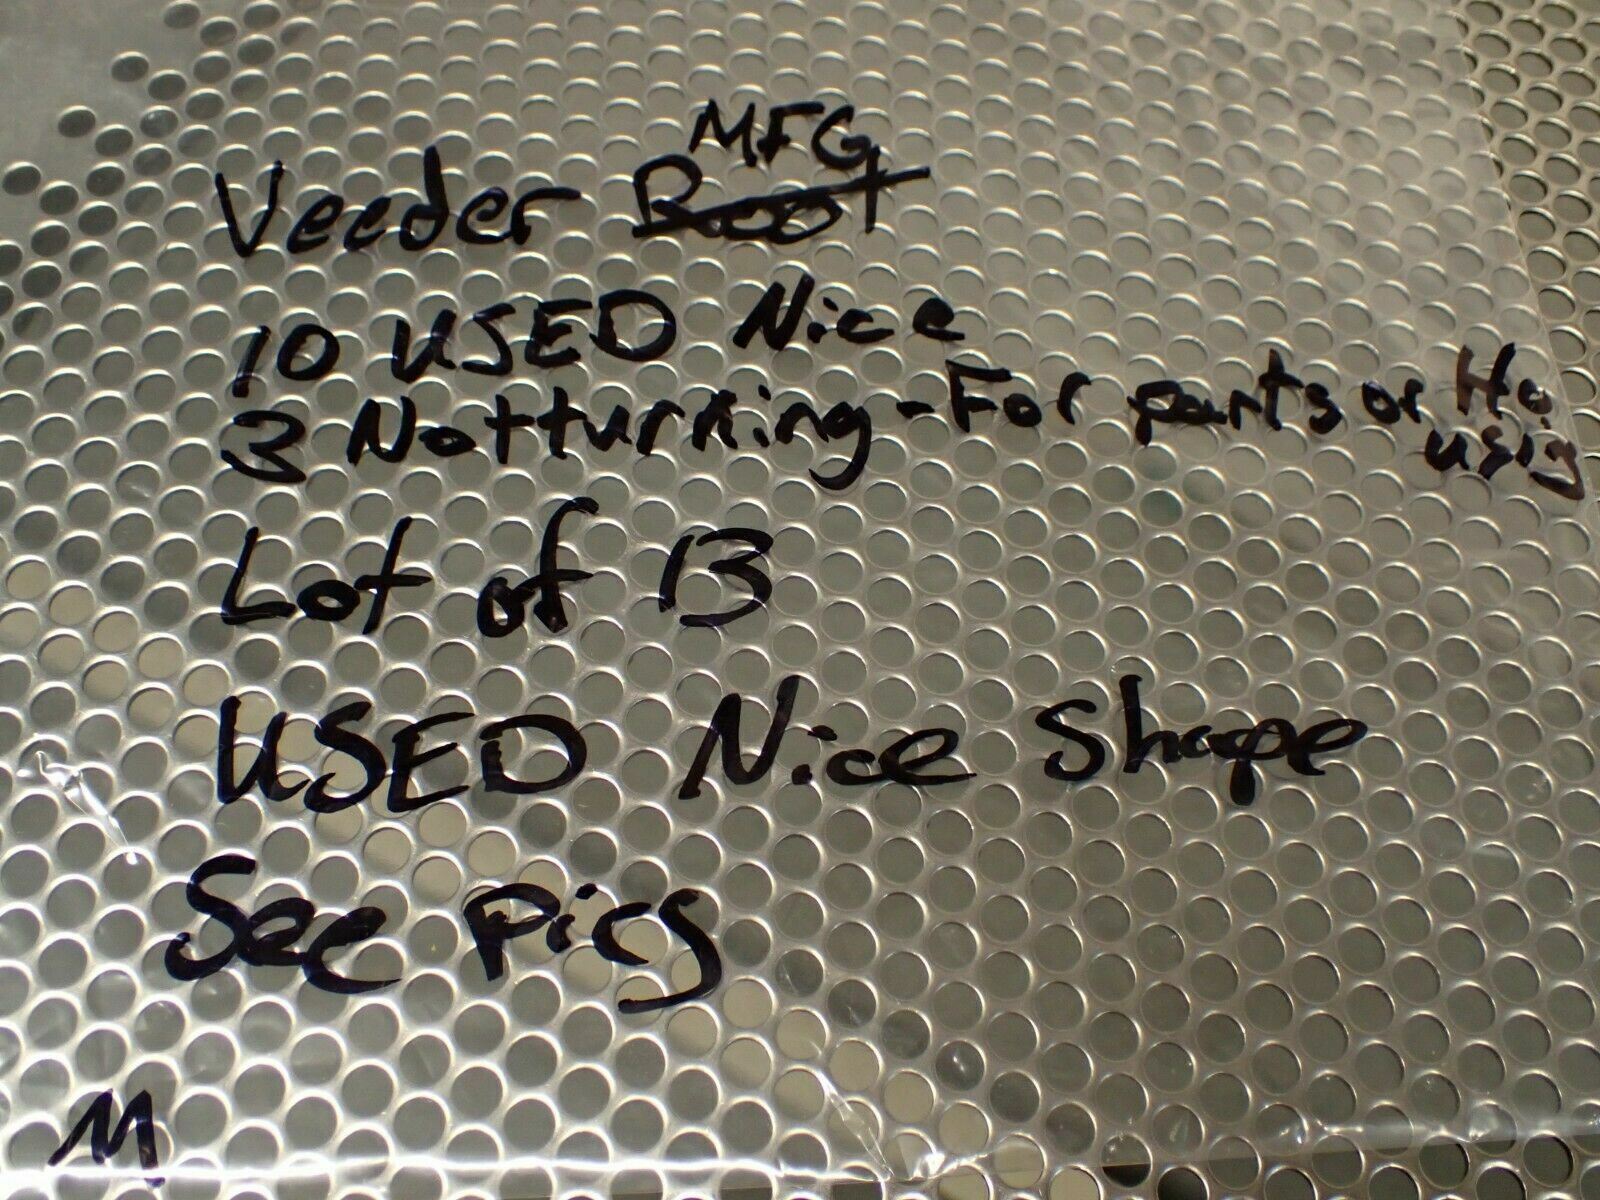 MFG
Veeder Root
10 USED Nice
3 Not turning - For parts or Ho
using
Lot of 13
USED Nice Shape
See Pics
M